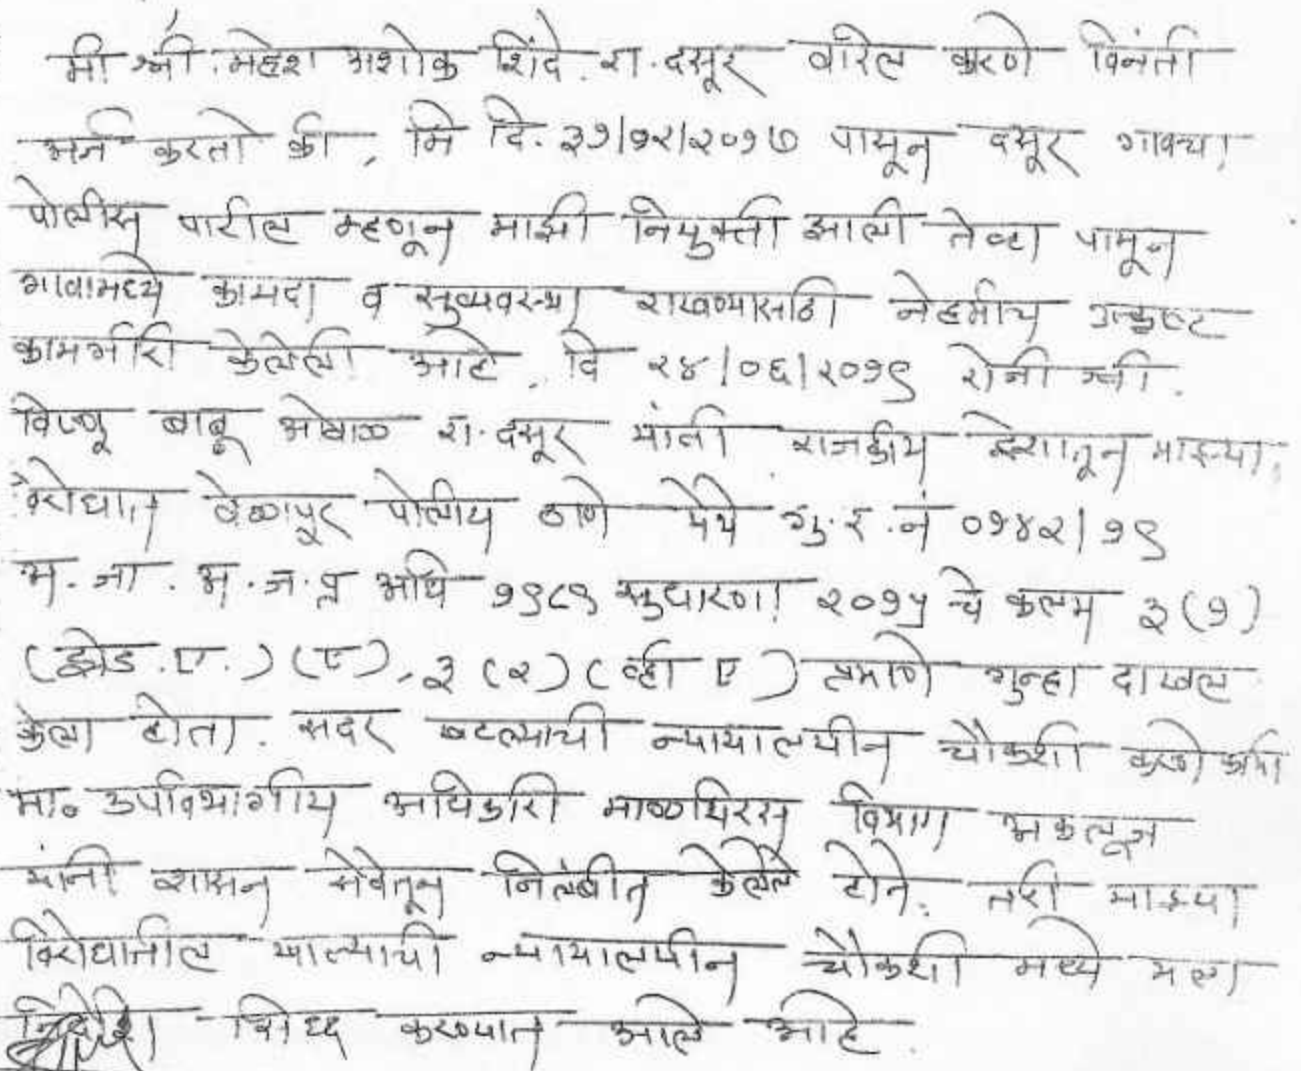 मी श्री. महेश अशोक शिंदे. रा. दसूर वरिल करणे विनंती
अर्ज करतो की, मि दि. ३१/१२/२०१७ पासून दसूर गावच्या
पोलीस पाटील म्हणून माझी नियुक्ती झाली तेव्हा पासून
गावामध्ये कायदा व सुव्यवस्था राखण्यासाठी नेहमीच उत्कृष्ट
कामगीरी केलेली आहे. दि २४/०६/२०१९ रोजी श्री.
विष्णू बाबू ओवाळ रा. दसूर यांनी राजकीय द्वेशातून माझ्या
विरोधात वेळापूर पोलीस ठाणे येथे गु. र. नं ०१४२/१९
अ. जा. अ. ज. प्र अधि १९८९ सुधारणा २०१५ चे कलम ३ (१)
(झेड. ए.) (ए), ३ (२) (व्ही ए) प्रमाणे गुन्हा दाखल
केला होता. सदर खटल्याची न्यायालयीन चौकशी करणे कामी
मा० उपविभागीय अधिकारी माळशिरस विभाग अकलूज
यांनी शासन सेवेतून निलंबीत केलेले होते. तरी माझ्या
विरोधातील खटल्याची न्यायालयीन चौकशी मध्ये मला
निर्दोश सिध्द करण्यात आले आहे.